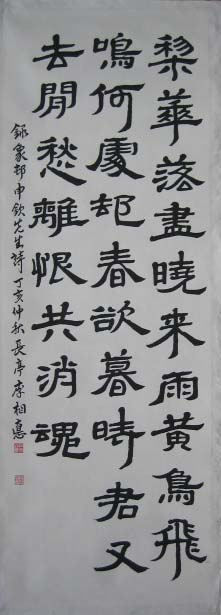 棃華落盡曉来雨黃鳥飛
鳴何處邨春欲暮時君又
去閒愁離恨共消魂
錄象邨申欽先生詩丁亥仲秋長亭李相悳